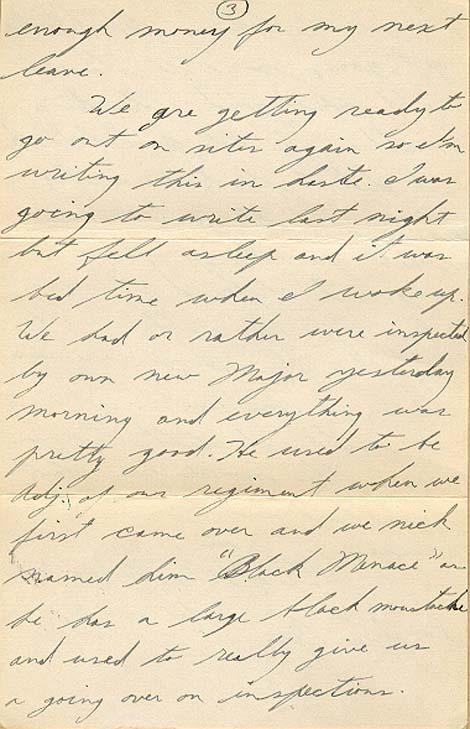 3
enough money for my next
leave.
We are getting ready to
go out on sites again so I'm
writing this in haste. I was
going to write last night
but fell asleep and it was
bed time when I woke up.
We had or rather were inspected
by own new Major yesterday
morning and everything was
pretty good. He used to be
Adj. of our regiment when we
first came over and we nick
named him "Black Menace" as
he has a large black moustache
and used to really give us
a going over on inspections.